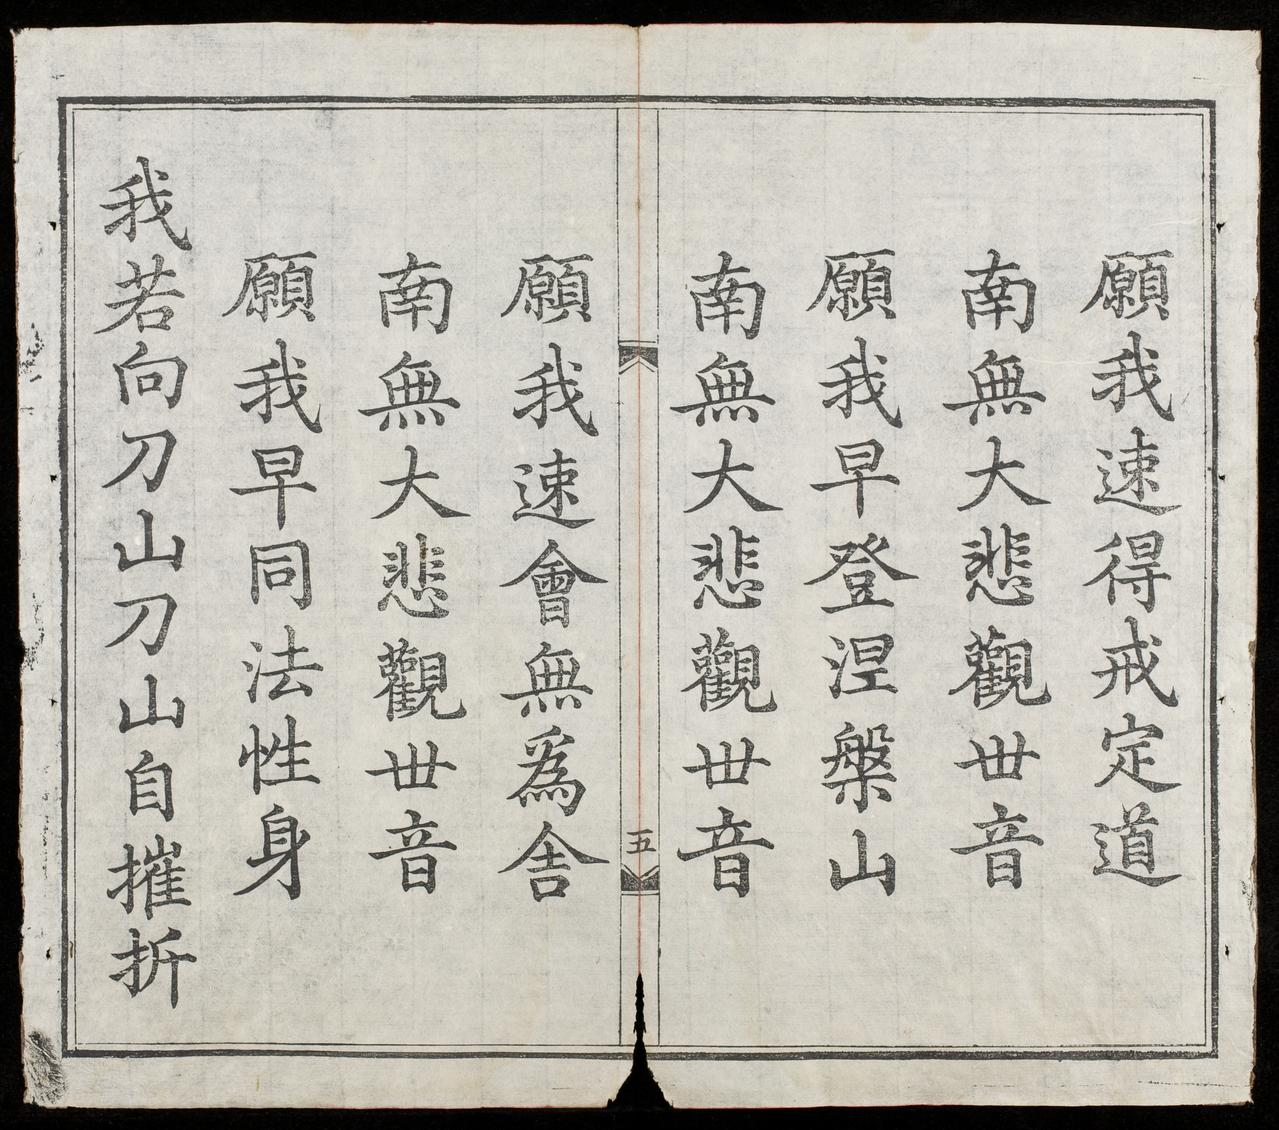 願我速得戒定道
南無大悲觀世音
願我早登涅槃山
南無大悲觀世音
五
願我速會無為舍
南無大悲觀世音
願我早同法性身
我若向刀山刀山自摧折